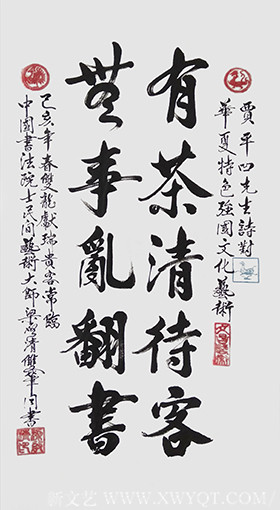 賈平凹先生詩對
華夏特色強國文化藝術
有茶清待客
無事亂翻書
己亥年春雙龍獻瑞貴客常臨
中國書法院士民間藝術大師梁 清雙筆同書
新文艺 WWW.XWYQT.COM